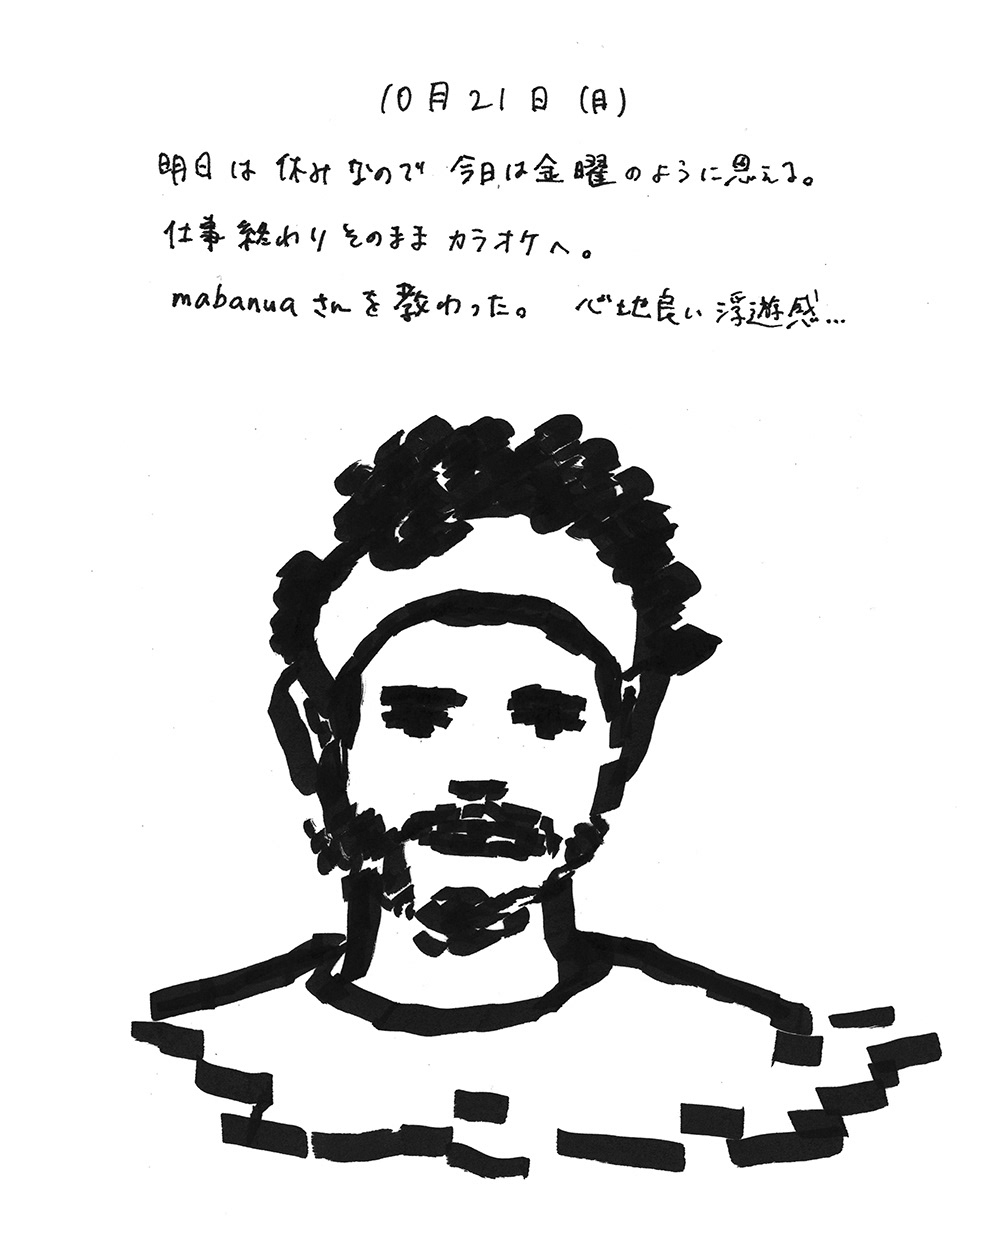 10月21日(月)
明日は休みなので今日は金曜のように思える。
仕事終わりそのままカラオケへ。
mabanuaさんを教わった。 心地良い浮遊感…